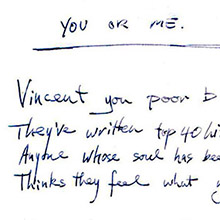 YOU OR ME.
Vincent you poor b
They've written top 40 hi
Anyone whose soul has bee
Thinks they feel what y